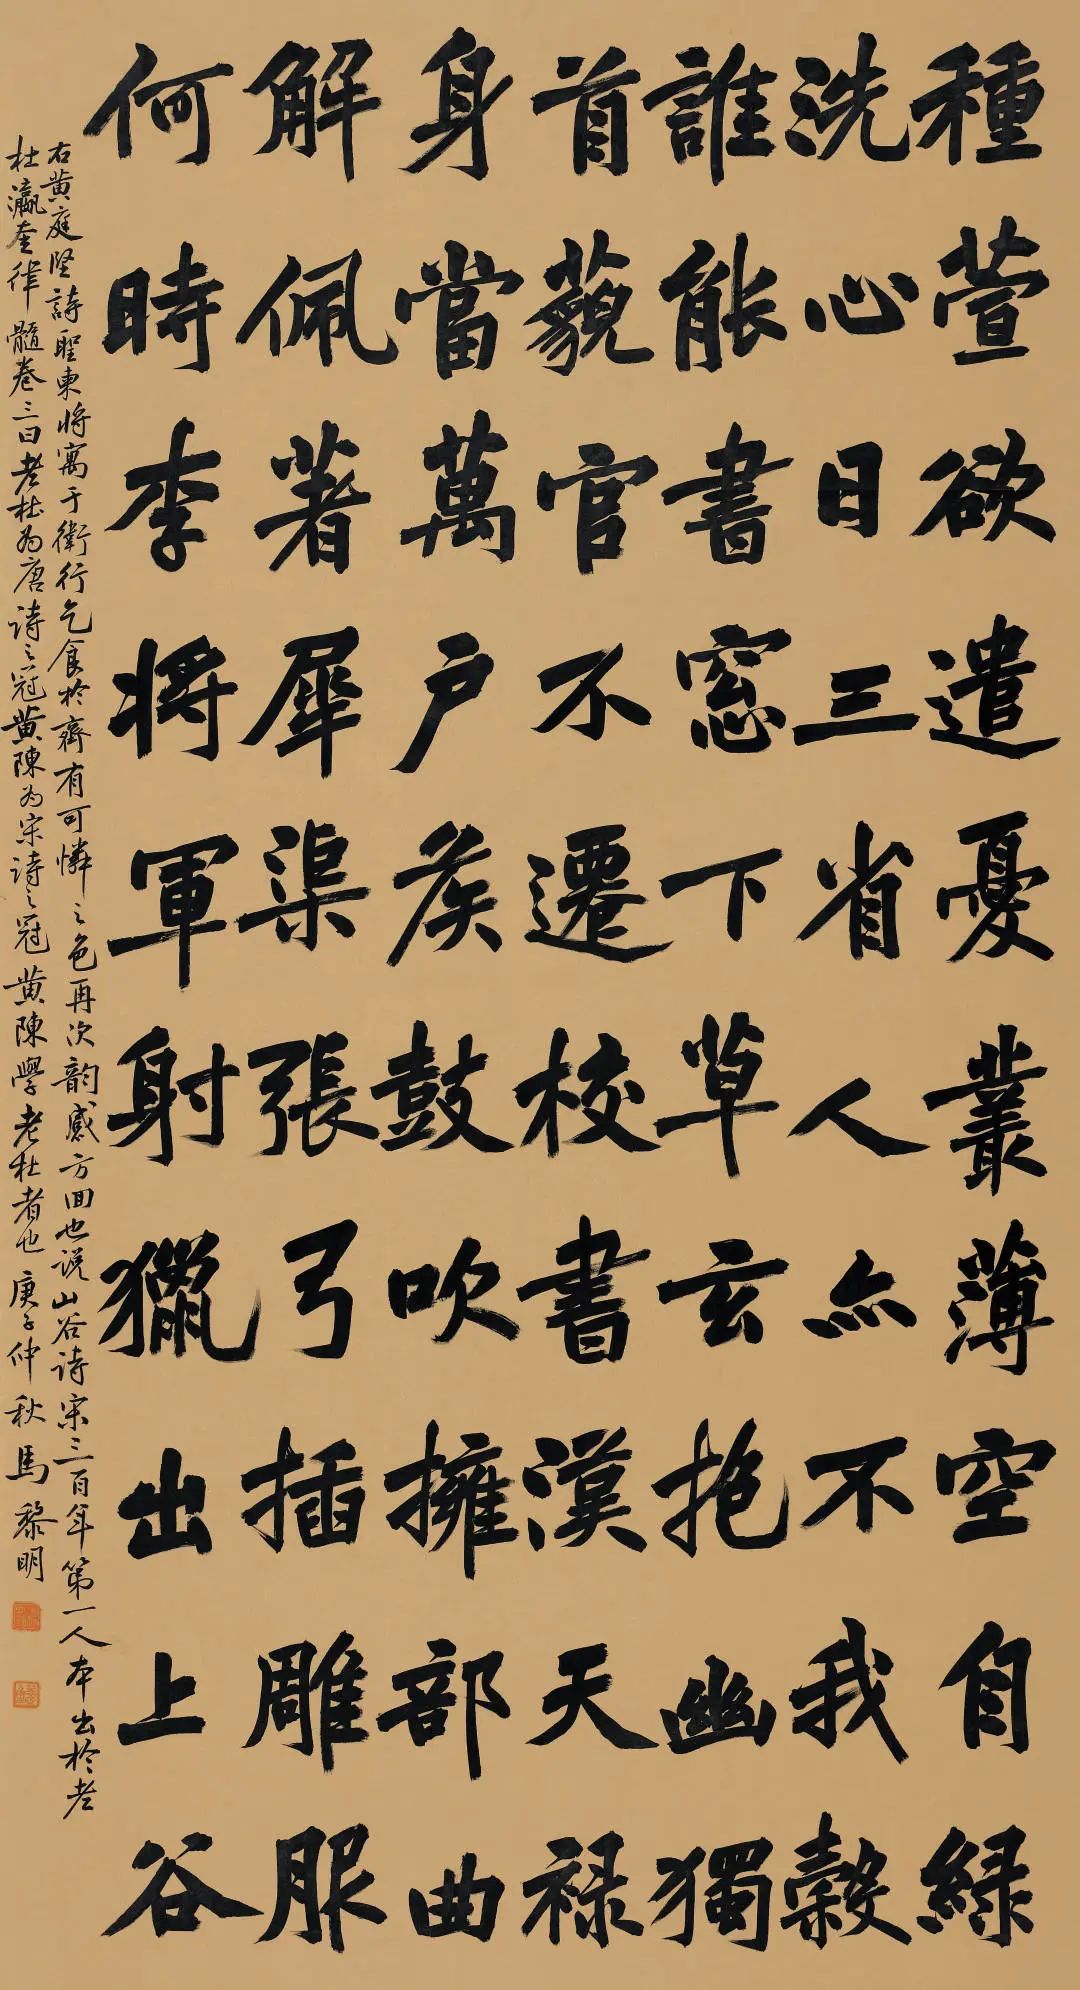 種萱欲遣憂叢薄空自綠
洗心日三省人亦不我穀
誰能書窓下草玄抱幽獨
首藐官不遷校書漢天祿
身當萬户矦鼓吹擁部曲
解佩著犀渠張弓插雕服
何時李將軍射獵出上谷
右黄庭堅詩聖東将寓于衛行乞食於齊有可憐之色再次韵感方回也説山谷詩宋三百年第一人本出於老
杜瀛奎律髓卷三曰老杜为唐詩之冠黄陳为宋詩之冠黄陳學老杜者也庚子仲秋馬黎明